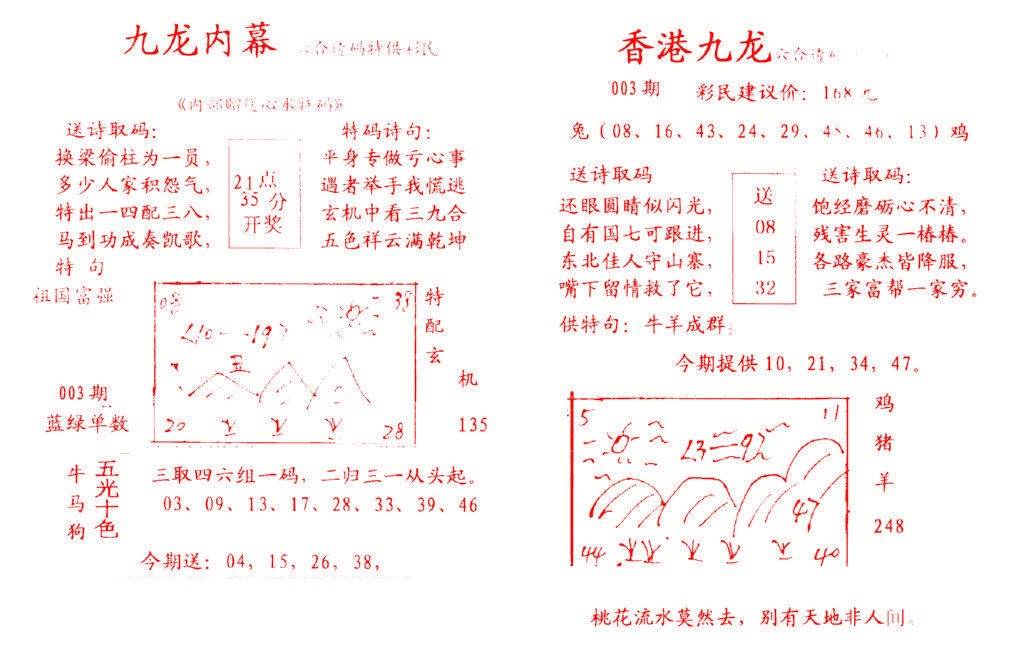 九龙内幕
合 码特供 民
《内部赠送心水特码》
送诗取码：
换梁偷柱为一员，
多少人家积怨气，
特出一四配三八，
马到功成奏凯歌，
特 句
祖国富强
21点
35分
开奖
特码诗句：
平身专做亏心事
遇者举手我慌逃
玄机中看三九合
五色祥云满乾坤
08
38
五
20
28
特
配
玄
机
135
003期
蓝绿单数
牛
马
狗
五光十色
三取四六组一码，二归三一从头起。
03、09、13、17、28、33、39、46
今期送：04，15，26，38，
香港九龙
六合
003期 彩民建议价：168元
兔（08、16、43、24、29、45、46、13）鸡
送诗取码
还眼圆睛似闪光，
自有国七可跟进，
东北佳人守山寨，
嘴下留情救了它，
送
08
15
32
送诗取码：
饱经磨砺心不清，
残害生灵一椿椿。
各路豪杰皆降服，
三家富帮一家穷。
供特句：牛羊成群；
今期提供10，21，34，47。
5
11
47
44
40
鸡
猪
羊
248
桃花流水莫然去，别有天地非人间。